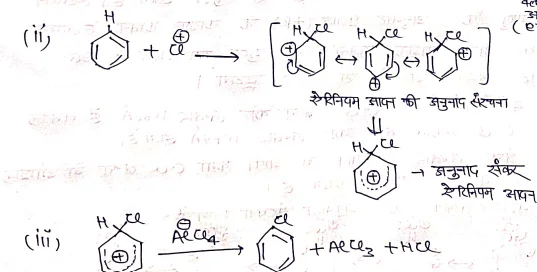 H
(ii) + Cl⊕ → [ H Cl ⊕ ↔ H Cl ⊕ ↔ H Cl ⊕ ]
ऐरिनियम आयन की अनुनाद संरचना
⇓
H Cl ⊕ → अनुनाद संकर
ऐरिनियम आयन
(iii) H Cl ⊕ AlCl₄⊖ → Cl + AlCl₃ + HCl